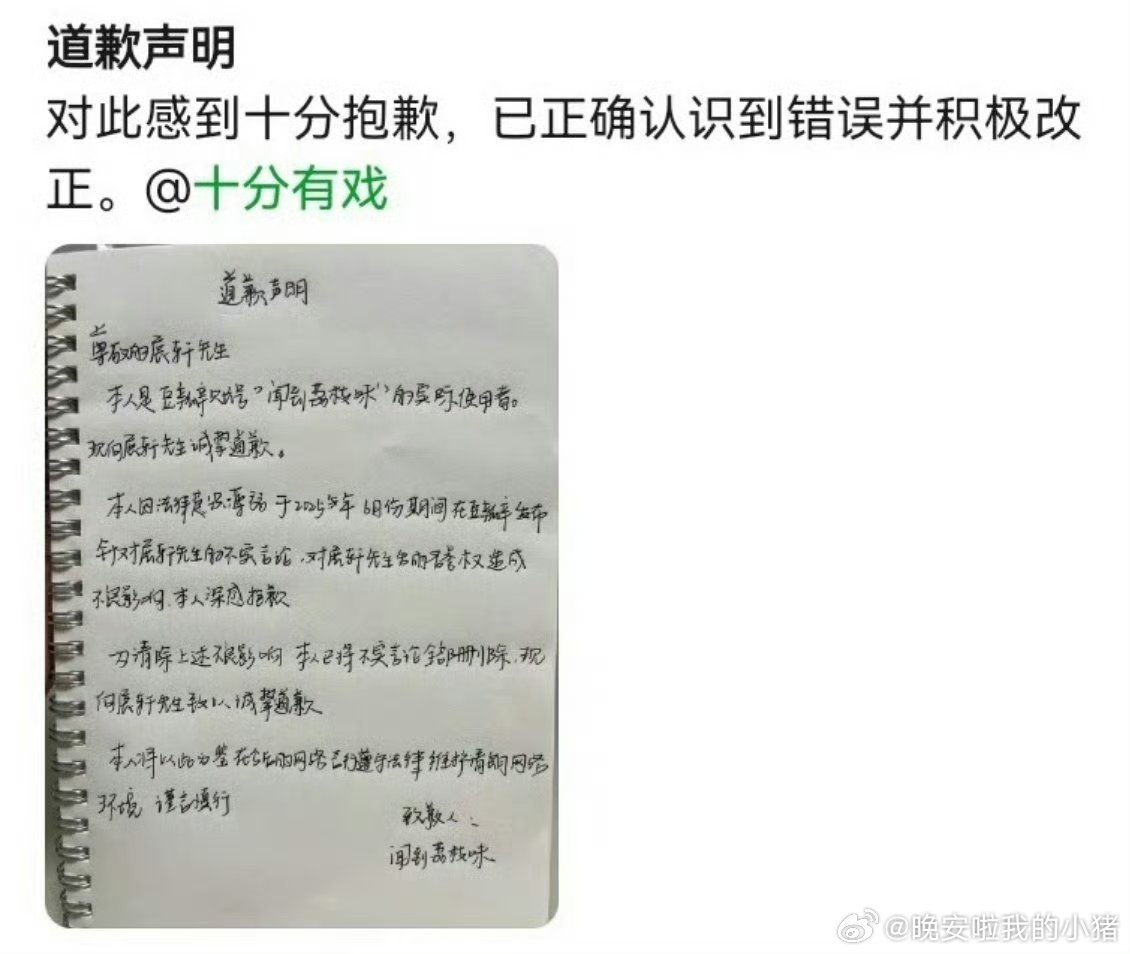 道歉声明
对此感到十分抱歉，已正确认识到错误并积极改
正。@十分有戏
道歉声明
尊敬的展轩先生
本人是豆瓣账号"闻到荔枝味"的实际使用者。
现向展轩先生诚挚道歉。
本人因法律意识薄弱 于2025年 6月份期间在豆瓣发布
针对展轩先生的不实言论，对展轩先生的名誉权造成
不良影响，本人深感抱歉
为清除上述不良影响 本人已将不实言论全部删除，现
向展轩先生致以诚挚道歉
本人将以此为鉴 在今后的网络言行遵守法律 维护清朗网络
环境 谨言慎行
致歉人：
闻到荔枝味
@晚安啦我的小猪